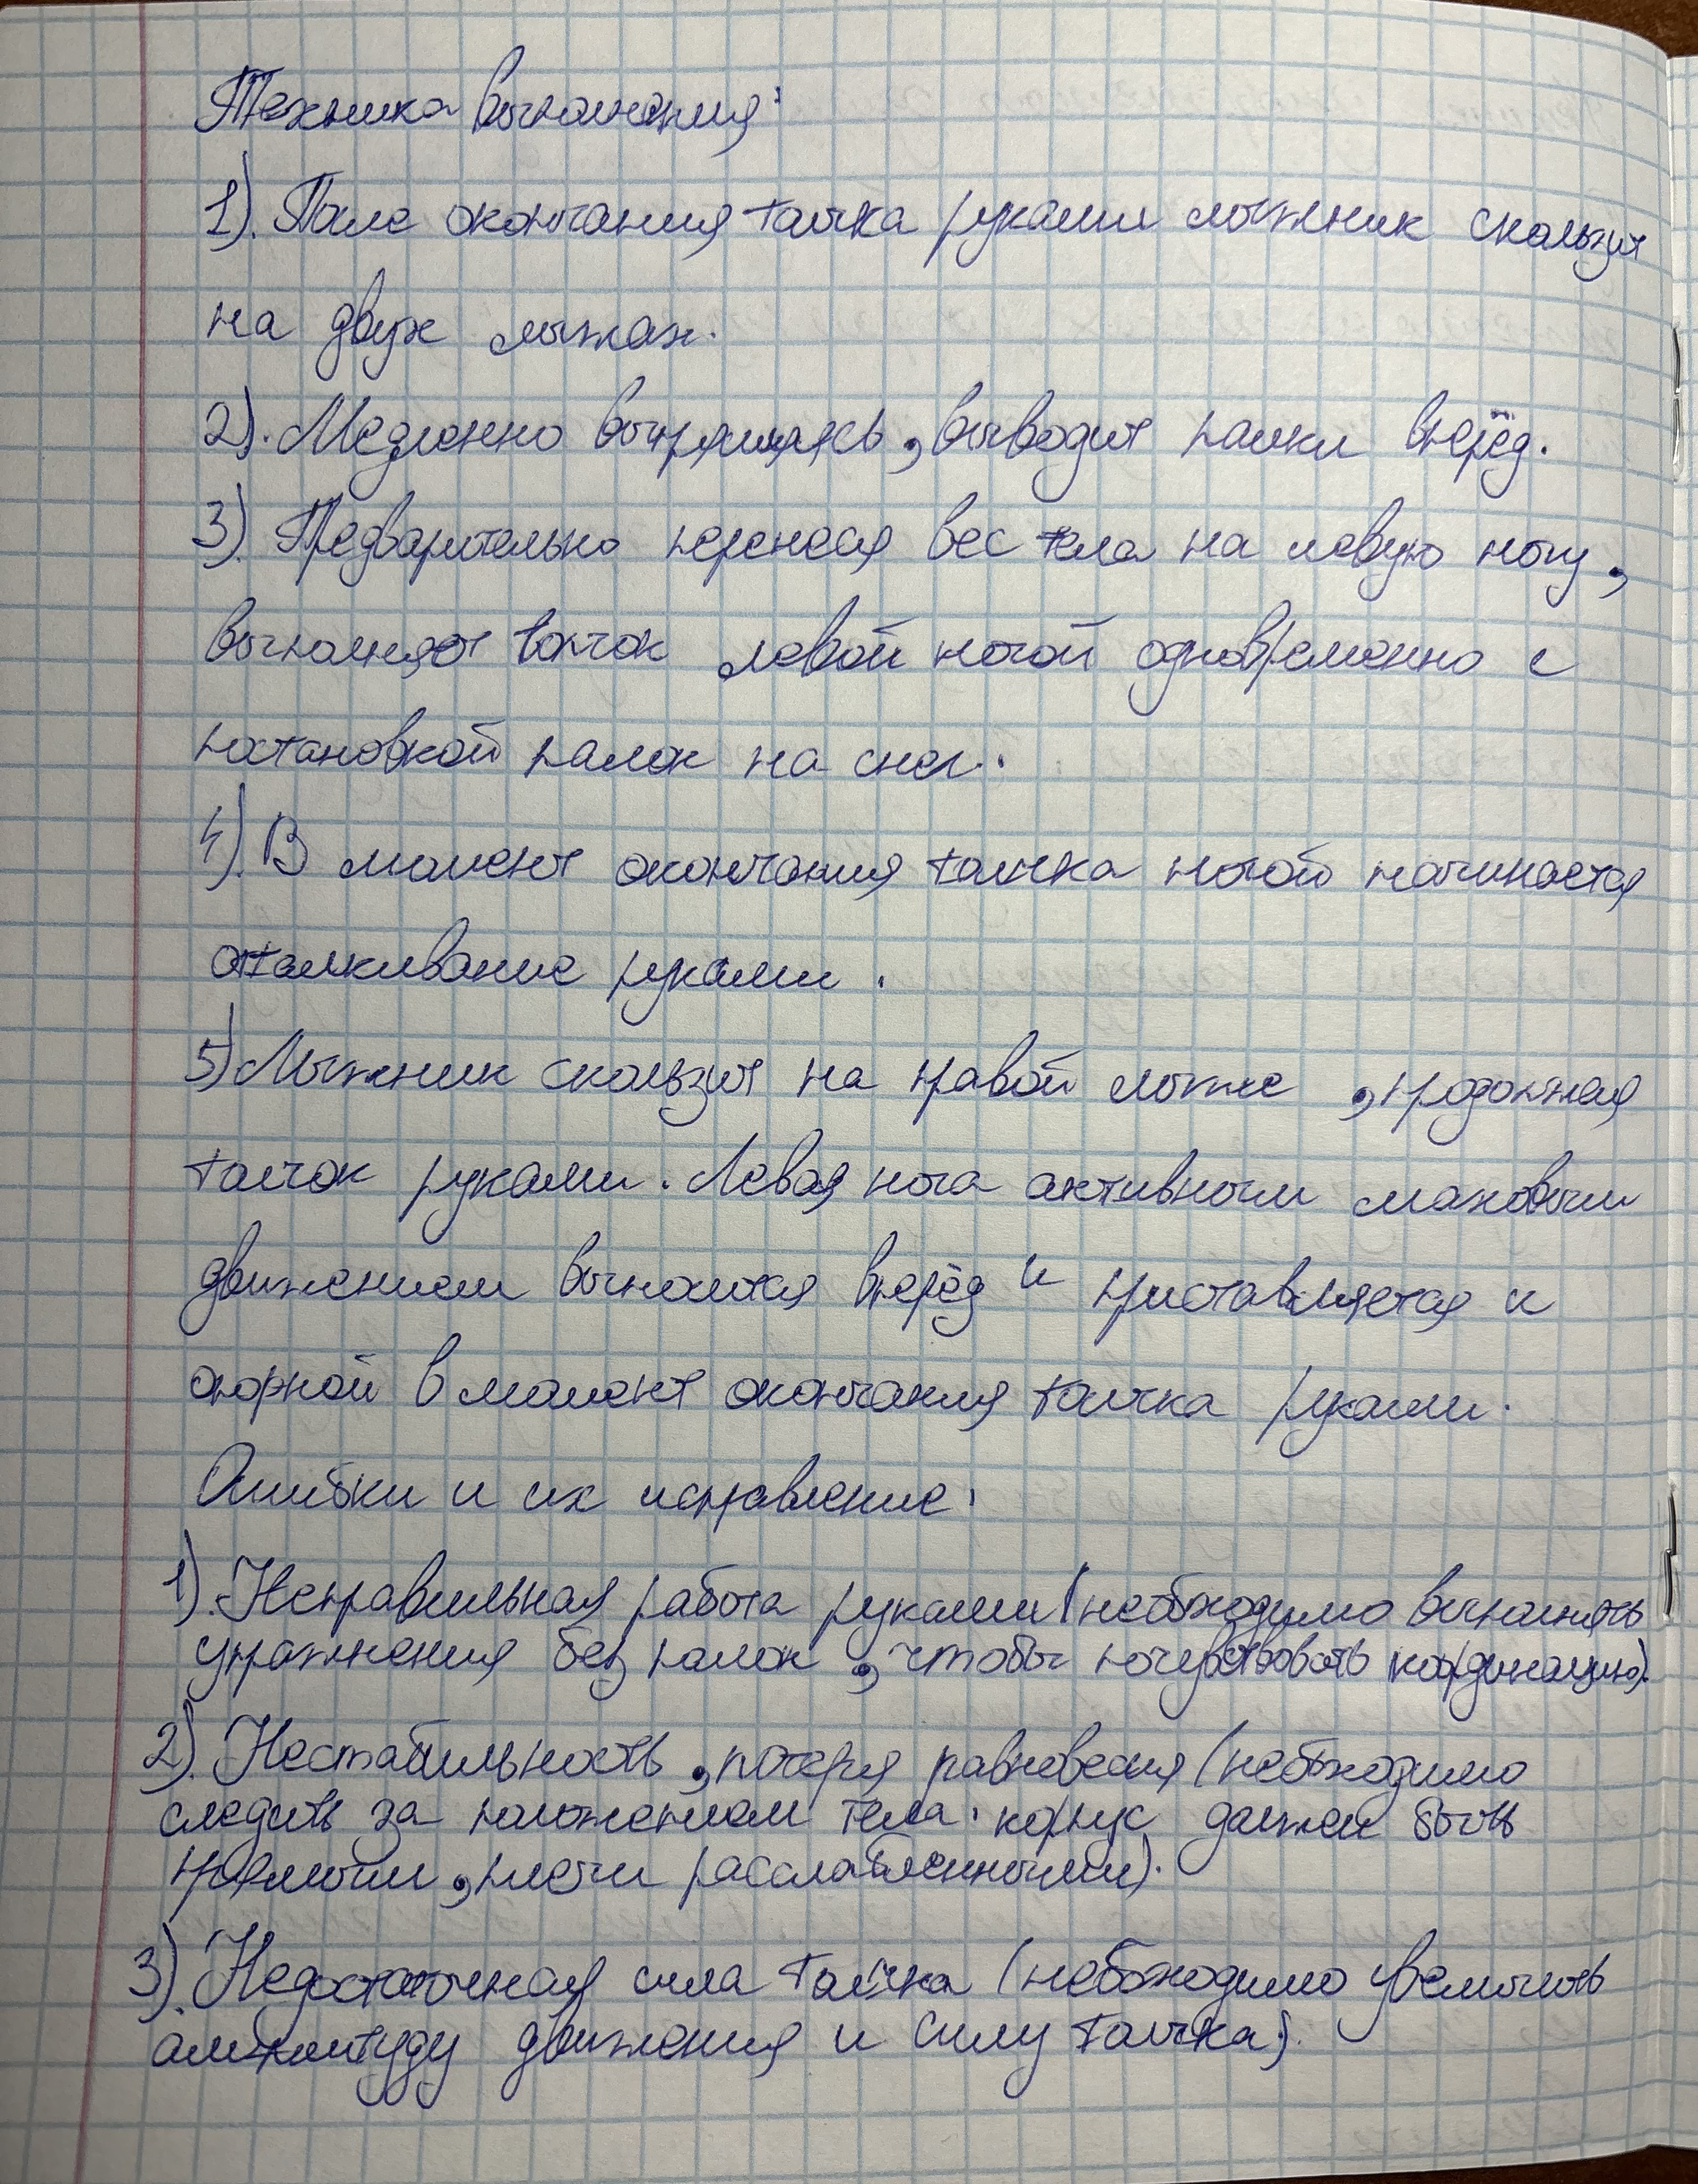 Техника выполнения:
1). После окончания толчка руками лыжник скользит
на двух лыжах.
2). Медленно выпрямляясь, выводит палки вперёд.
3). Предварительно перенеся вес тела на левую ногу,
выполняет толчок левой ногой одновременно с
постановкой палок на снег.
4). В момент окончания толчка ногой начинается
отталкивание руками.
5) Лыжник скользит на правой лыже, продолжая
толчок руками. Левая нога активным маховым
движением выносится вперёд и приставляется к
опорной в момент окончания толчка руками.
Ошибки и их исправление:
1). Неправильная работа руками (необходимо выполнять
упражнения без палок, чтобы почувствовать координацию).
2). Нестабильность, потеря равновесия (необходимо
следить за положением тела: корпус должен быть
прямым, плечи расслабленными).
3). Недостаточная сила толчка (необходимо увеличить
амплитуду движения и силу толчка).